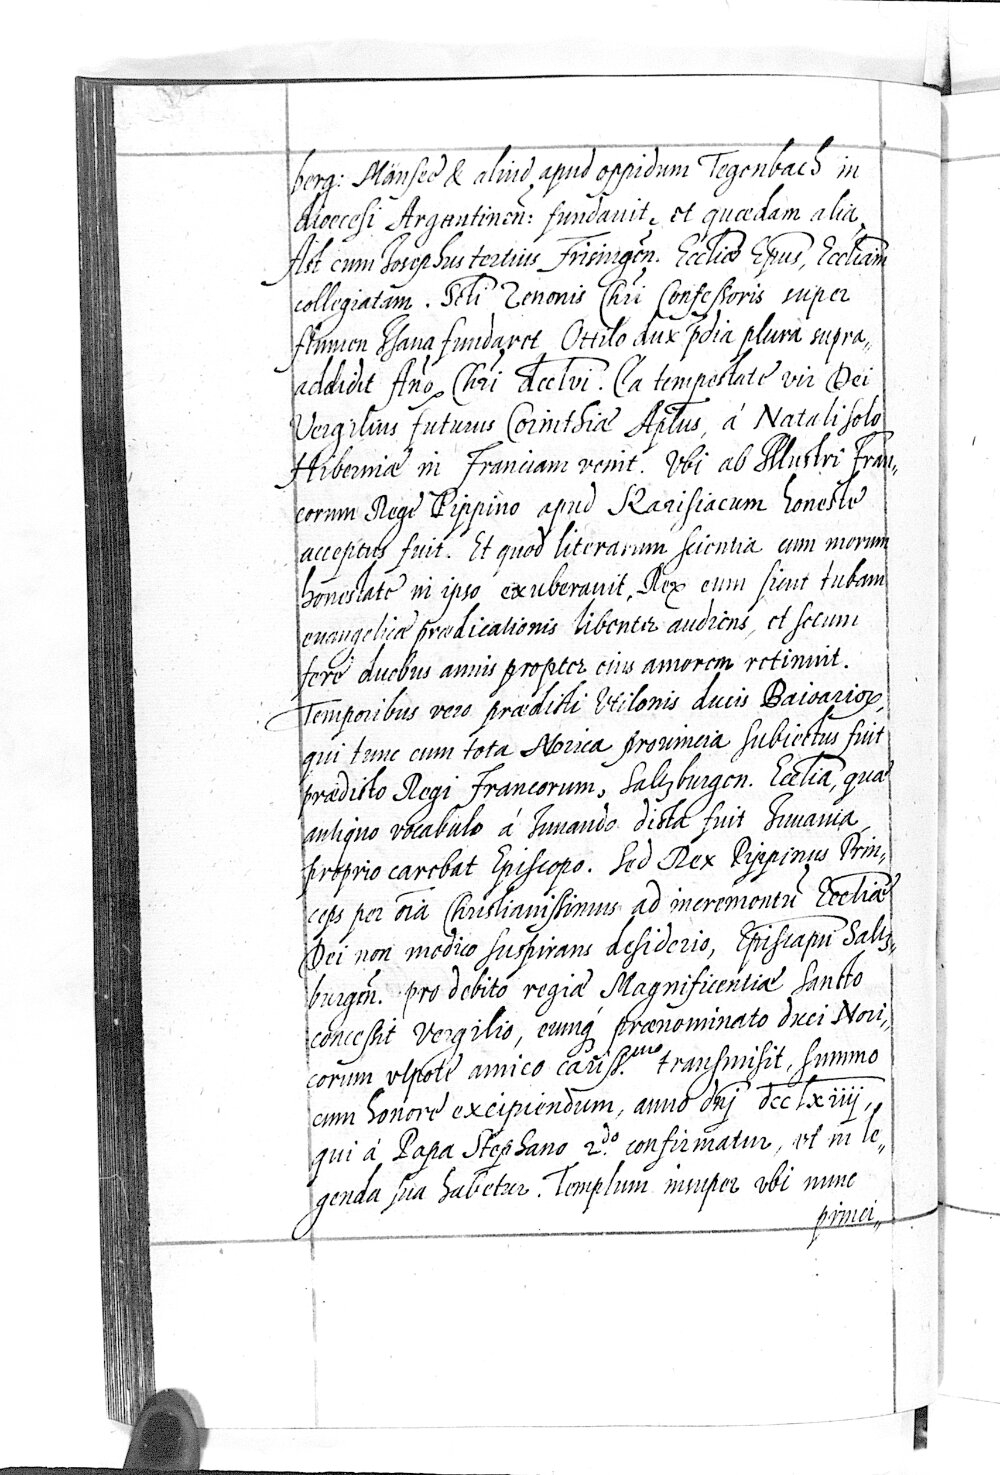 berg: Mänsee & aliud apud oppidum Tegenbach in
dioecesi Argentinen̄: fundauit, et quædam alia,
Ast cum Josephus tertius Frisingen̄. Eccliæ Epūs, Eccliam
collegiatam. Scti Zenonis Chri Confessoris super
flumen Isana fundaret Ottilo dux p̄dia plura supra„
addidit Año Chri dcclvi. Ea tempestate vir Dei
Vergilius futurus Corinthiæ Aplus, á Natali solo
Hiberniæ in Franciam venit. Vbi ab Illustri Fran„
corum Rege Pippino apud Karisiacum honeste
acceptus fuit. Et quod literarum scientia cum morum
honestate in ipso exuberauit, Rex eum sicut tubam
euangelicæ prædicationis libenter audiens, et secum
fere duobus annis propter eius amorem retinuit.
Temporibus vero prædicti Vtilonis ducis Baioarioꝝ,
qui tunc cum tota Norica prouincia subiectus fuit
prædicto Regi Francorum, Saltzburgen. Ecclia, quæ
antiquo vocabulo á Iuuando dicta fuit Iuuauia,
proprio carebat Episcopo. Sed Rex Pippinus Prin„
ceps per oīa Christianissimus ad incrementū Eccliæ
Dei non modico suspirans desiderio, Episcopū Saltz„
burgen̄. pro debito regiæ Magnificentiæ Sancto
concessit Vergilio, eumq́ prænominato duci Nori„
corum vtpote amico cariss.mo transmisit, summo
cum honore excipiendum, anno dn̄j dcclxiiij,
qui á Papa Stephano 2.do confirmatur, vt in le„
genda sua habetur. Templum insuper vbi nunc
princi„